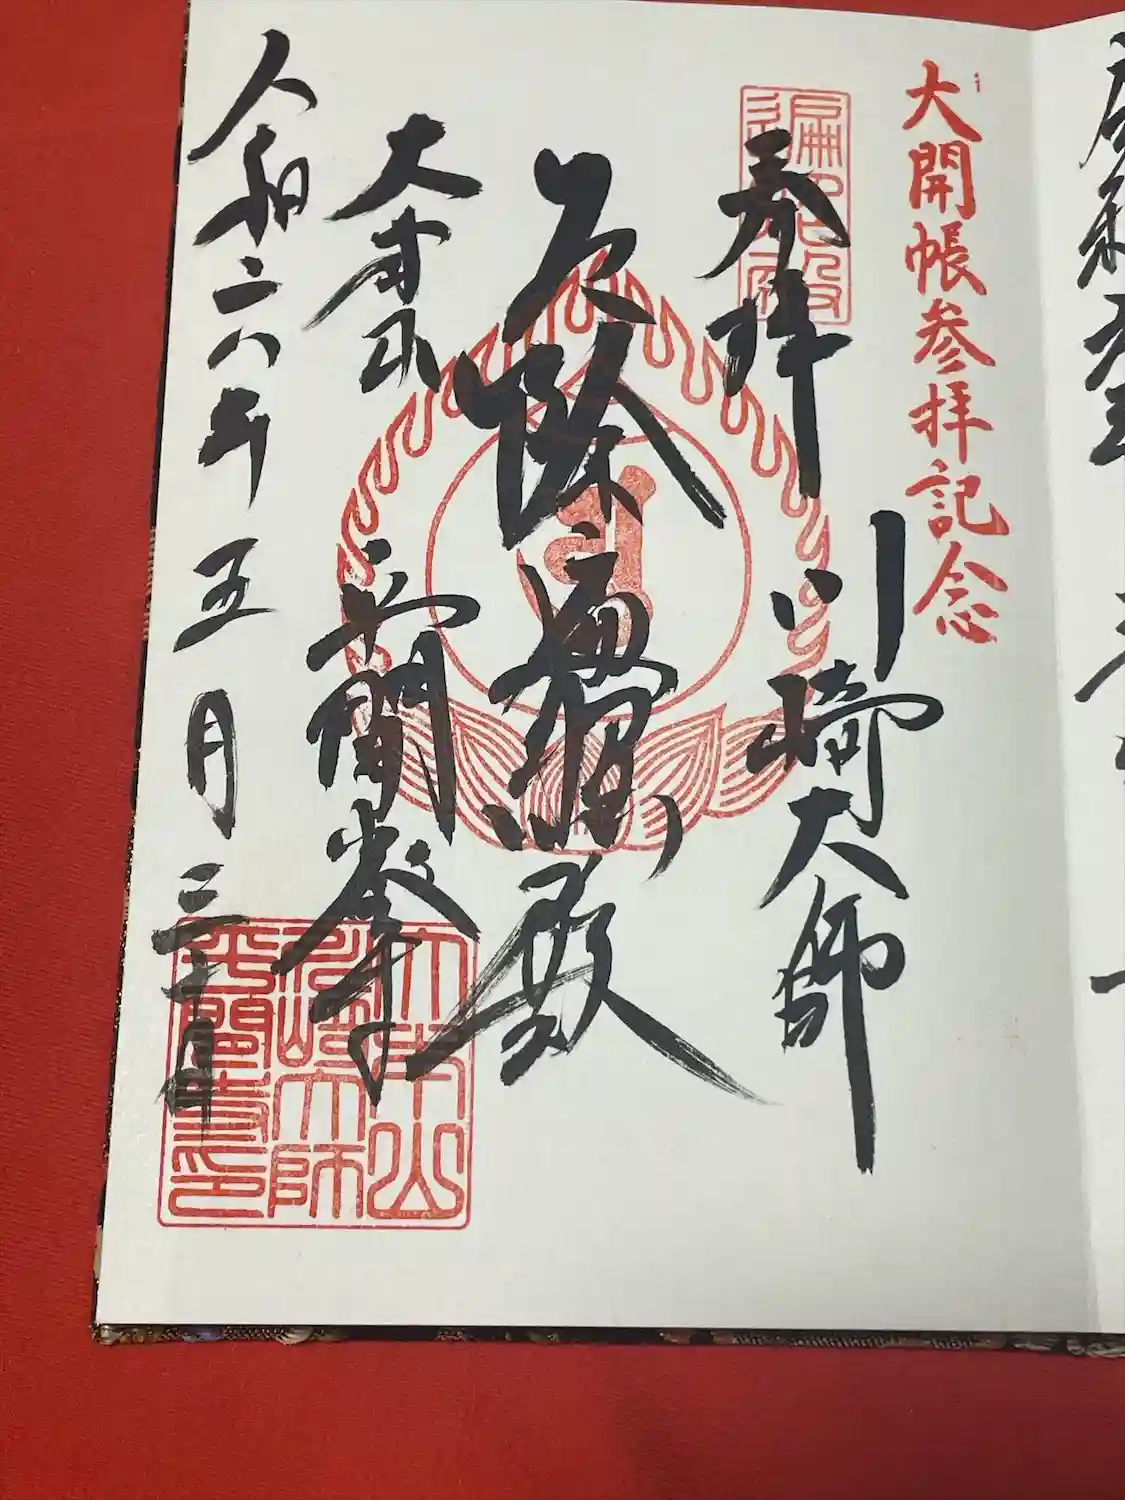 大開帳参拝記念
奉拝
川崎大師
厄除
遍照殿
大本山
平間寺
令和六年五月三十一日
遍照殿
大本山
川崎大師
平間寺印